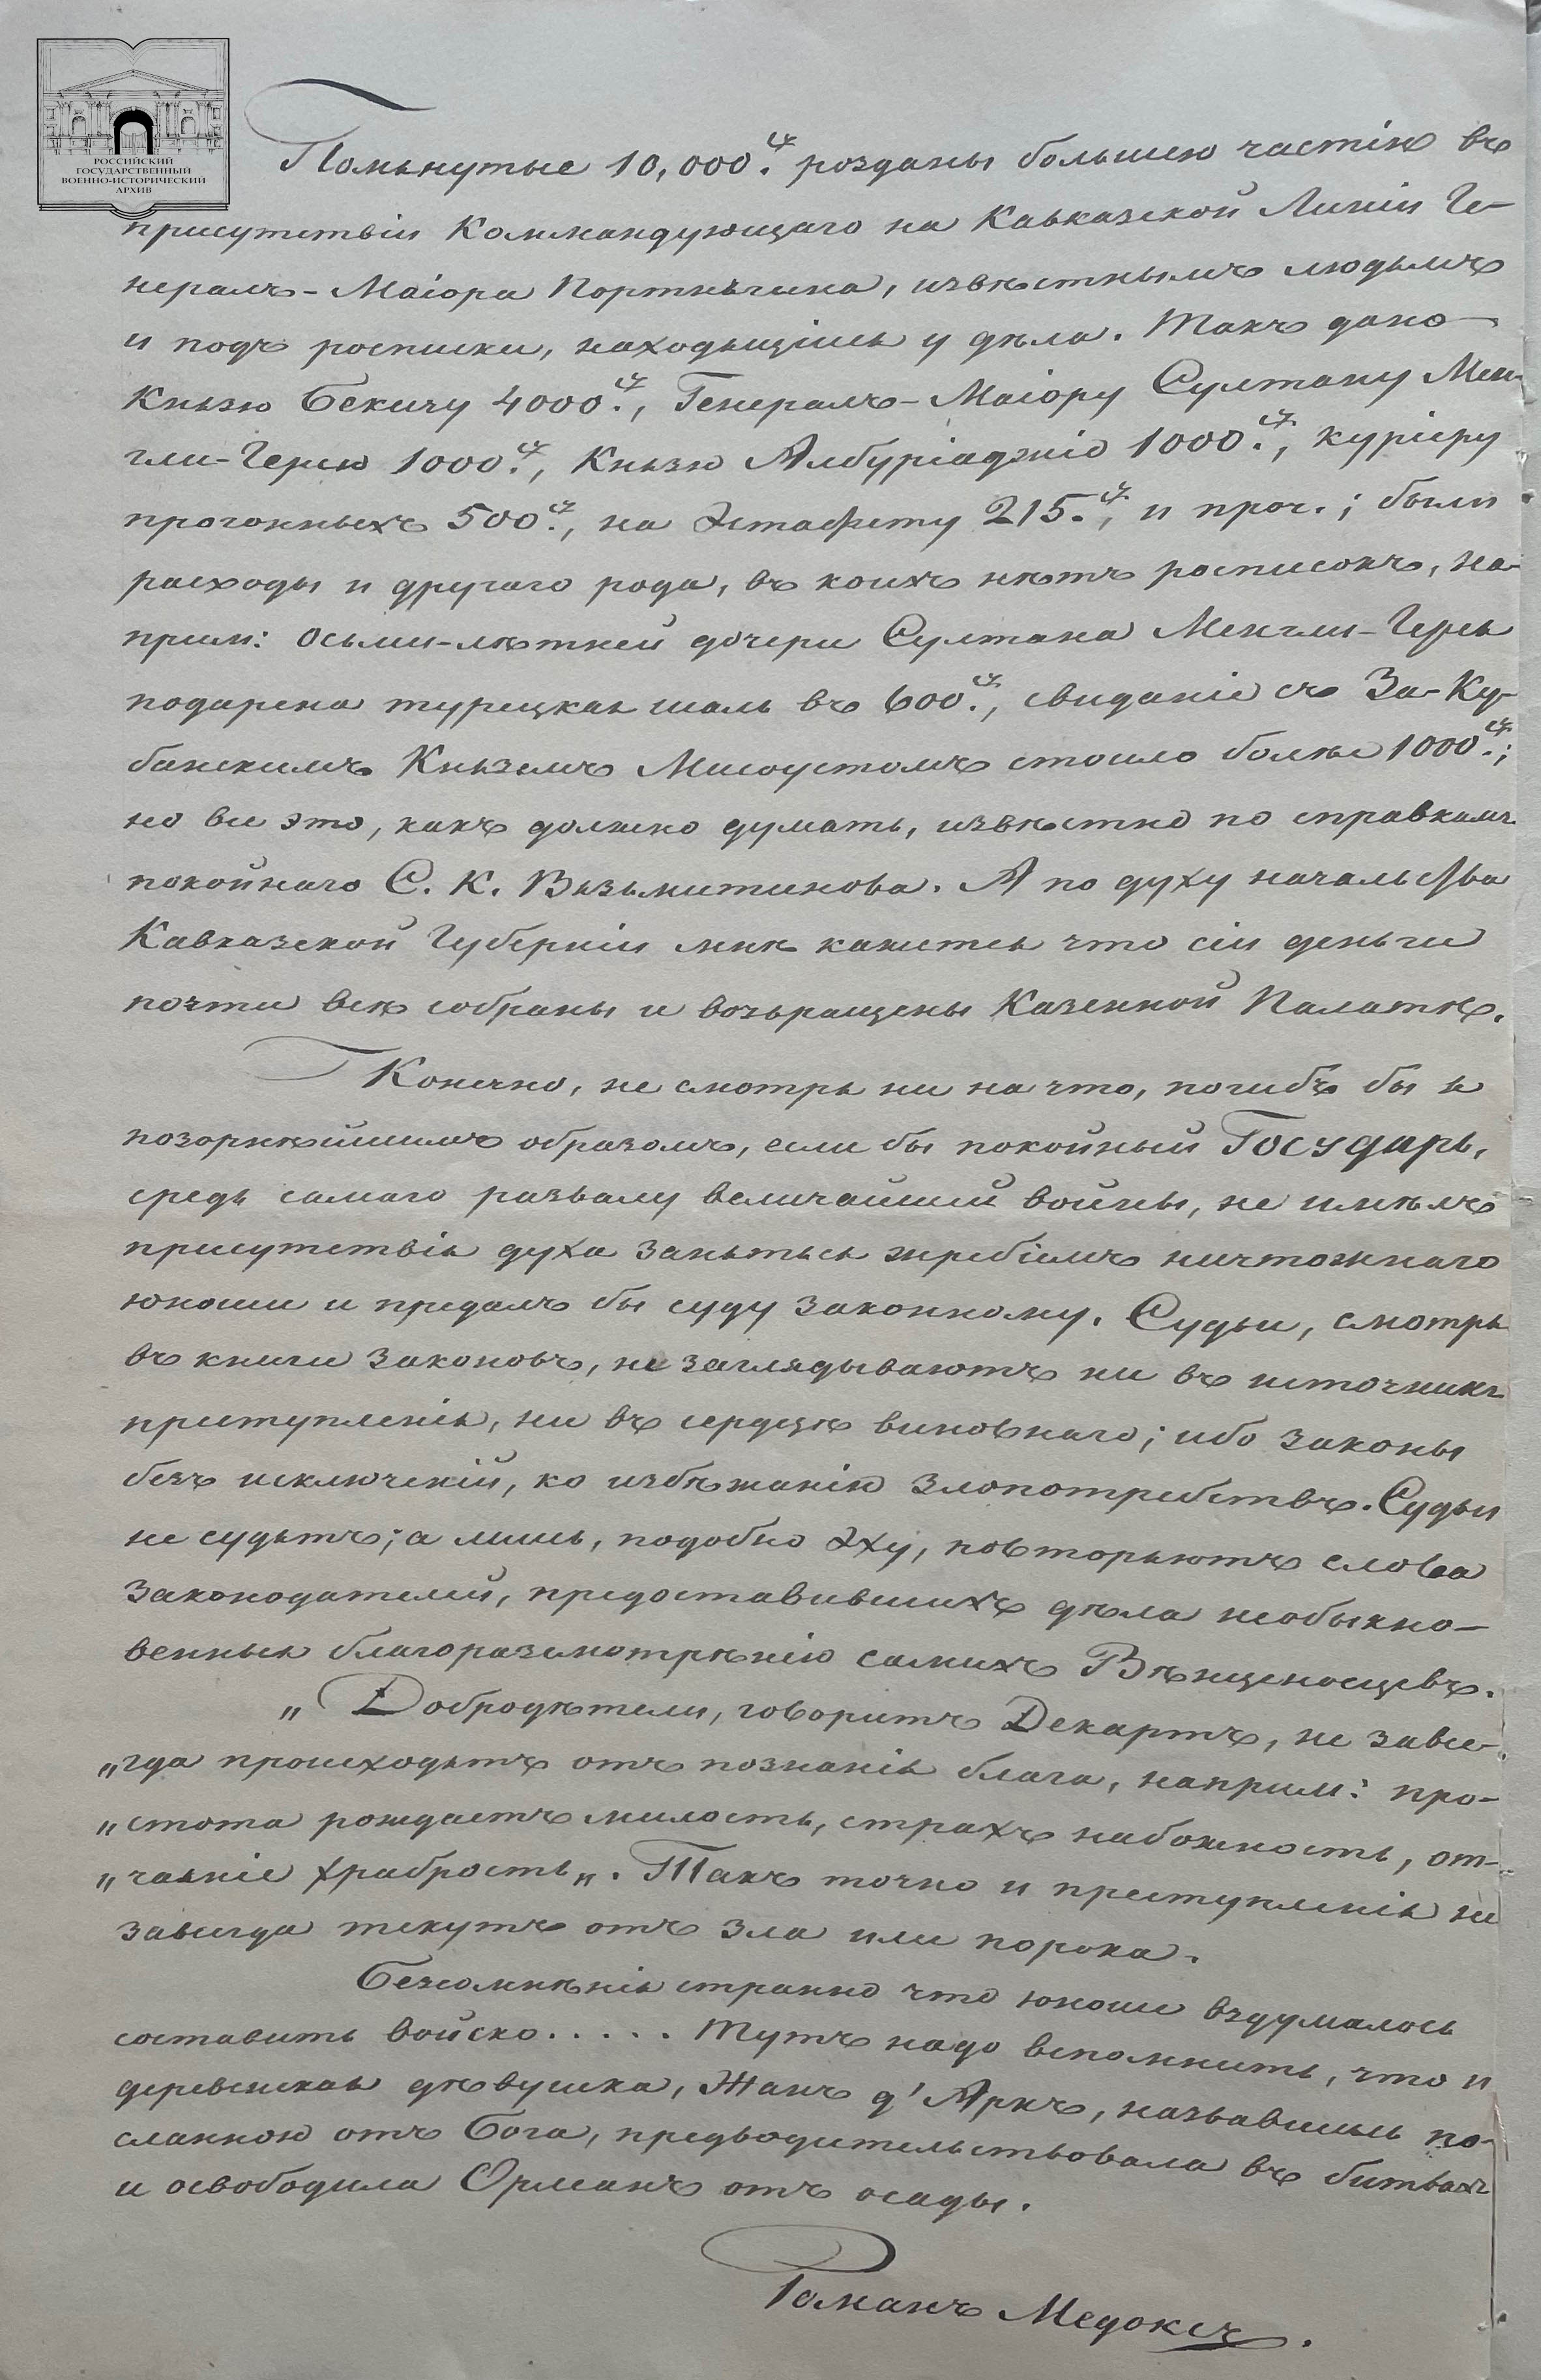 РОССИЙСКИЙ
ГОСУДАРСТВЕННЫЙ
ВОЕННО-ИСТОРИЧЕСКИЙ
АРХИВ
Помянутые 10,000. розданы большею частію въ
присутствіи Коммандующаго на Кавказской Линіи Ге-
нералъ-Маіора Портнягина, извѣстнымъ людямъ
и подъ росписки, находящіяся у дѣла. Такъ дано
Князю Бековичу 4000., Генералъ-Маіору Султану Мен-
гли-Герею 1000., Князю 1000., куріеру
прогонныхъ 500., на Эстафету 215., и проч.; были
расходы и другаго рода, въ коихъ нѣтъ росписокъ, на-
прим: осьми-лѣтней дочери Султана Менгли-Герея
подарена турецкая шаль въ 600., свиданіе съ За-Ку-
банскимъ Княземъ Мисоустомъ стоило болѣе 1000.;
но все это, какъ должно думать, извѣстно по справкамъ
покойнаго С. К. Вязьмитинова. А по духу начальства
Кавказской Губерніи мнѣ кажется что сіи деньги
почти всѣ собраны и возвращены Казенной Палатѣ.
Конечно, не смотря ни на что, погибъ бы я
позорнѣйшимъ образомъ, если бы покойный Государь,
средь самаго развалу величайшей войны, не имѣлъ
присутствія духа заняться жребіемъ ничтожнаго
юноши и предалъ бы суду законному. Судьи, смотря
въ книги законовъ, не заглядываютъ ни въ источникъ
преступленія, ни въ сердце виновнаго; ибо законы
безъ исключеній, ко избѣжанію злопотребствъ. Судьи
не судятъ; а лишь, подобно Эху, повторяютъ слова
Законодателей, предоставившихъ дѣла необыкно-
венныя благоразсмотрѣнію самихъ Вѣнценосцевъ.
„Добродѣтели, говоритъ Декартъ, не завсе-
„гда происходятъ отъ познанія блага, наприм: про-
„стота рождаетъ милость, страхъ набожность, от-
„чаяніе храбрость„. Такъ точно и преступленія не
завсегда текутъ отъ зла или порока.
Безсомнѣнія странно что юноше вздумалось
составить войско..... Тутъ надо вспомнить, что и
деревенская дѣвушка, Жанъ д'Аркъ, назвавшись по-
сланною отъ Бога, предводительствовала въ битвахъ
и освободила Орлеанъ отъ осады.
Романъ Медоксъ.